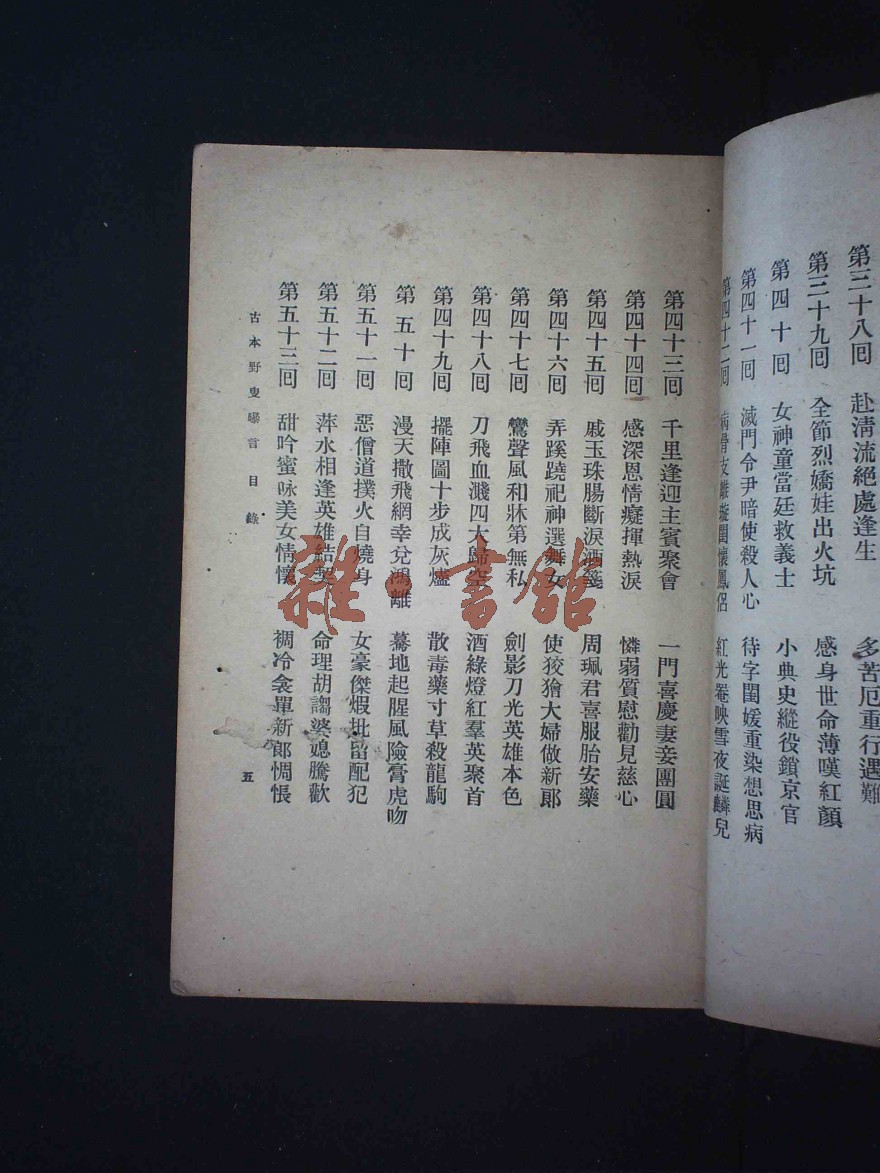 第三十八囘 赴清流絕處逢生 多苦厄重行遇難
第三十九囘 全節烈嬌娃出火坑 感身世命薄嘆紅顏
第四十囘 女神童當廷救義士 小典史縱役鎖京官
第四十一囘 滅門令尹暗使殺人心 待字閨媛重染想思病
第四十二囘 病骨支離璇閨懷鳳侶 紅光罨映雪夜誕麟兒
第四十三囘 千里逢迎主賓聚會 一門喜慶妻妾團圓
第四十四囘 感深恩情癡揮熱淚 憐弱質慰勸見慈心
第四十五囘 戚玉珠腸斷淚洒箋 周珮君喜服胎安藥
第四十六囘 弄蹊蹺祀神選舞女 使狡獪大婦做新郎
第四十七囘 鸞聲風和牀第無私 劍影刀光英雄本色
第四十八囘 刀飛血濺四大歸空 酒綠燈紅羣英聚首
第四十九囘 擺陣圖十步成灰燼 散毒藥寸草殺龍駒
第五十囘 漫天撒飛網幸兌鴻離 驀地起腥風險膏虎吻
第五十一囘 惡僧道撲火自燒身 女豪傑煆批留配犯
第五十二囘 萍水相逢英雄結契 命理胡謅婆媳騰歡
第五十三囘 甜吟蜜咏美女情懷 裯冷衾單新郎惆悵
古本野叟曝言 目錄 五
雜·書館